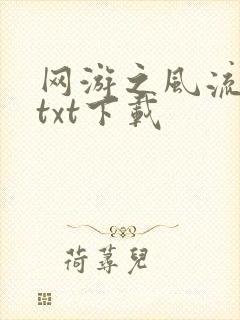 网游之風流
txt下載
荷蕁兒